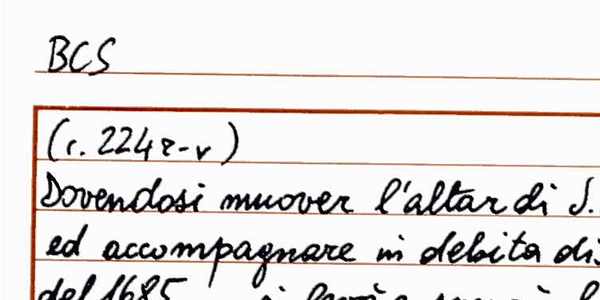 BCS
(c. 224r-v)
Dovendosi muover l'altar di S.
ed accompagnare in debita dis
del 1685